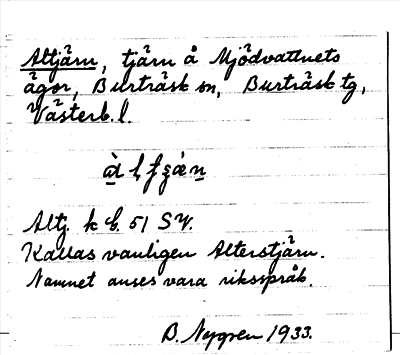 Altjärn, tjärn å Mjödvattnets
ägor, Burträsk sn, Burträsk tg,
Västerb. l.
Altj. k G. 51 SV.
Kallas vanligen Alterstjärn.
Namnet anses vara riksspråk.
B. Nygren 1933.